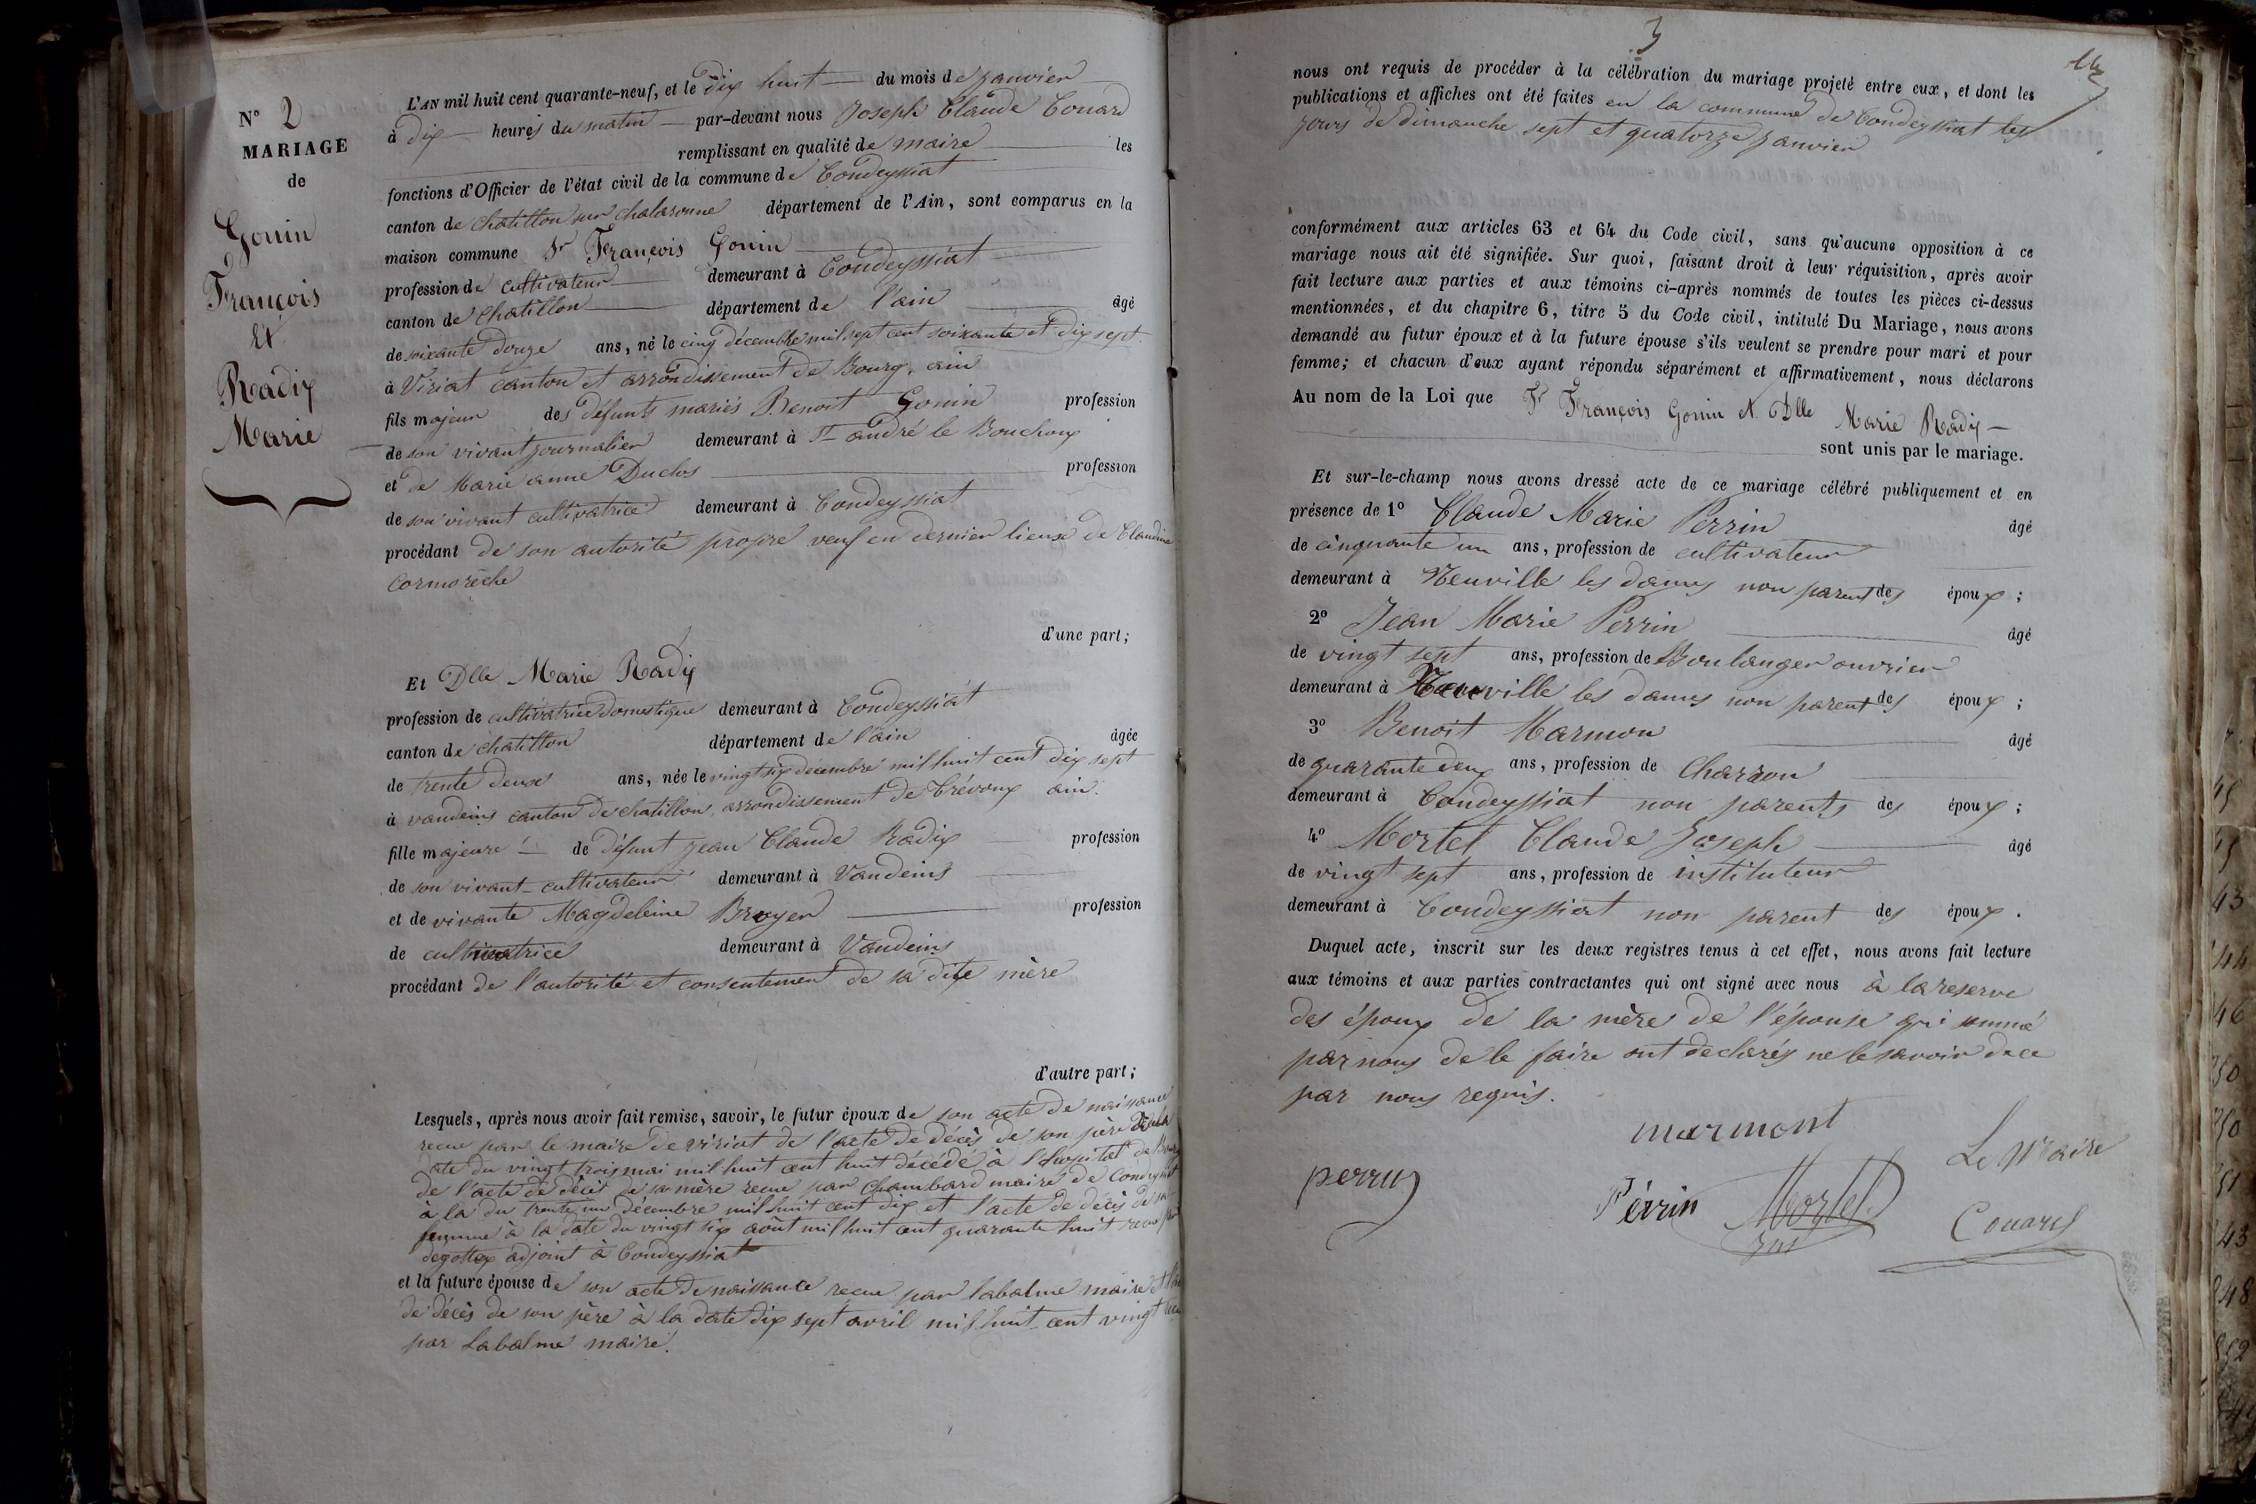 N° 2
MARIAGE
de
Gonin
François
Et
Radix
Marie
L'AN mil huit cent quarante-neuf, et le dix huit du mois de janvier
à dix heures du matin par-devant nous Joseph Claude Couard
remplissant en qualité de maire les
fonctions d'Officier de l'état civil de la commune de Condeyssiat
canton de chatillon sur chalaronne département de l'Ain, sont comparus en la
maison commune Sr François Gonin
profession de cultivateur demeurant à Condeyssiat
canton de chatillon département de l'ain âgé
de soixante douze ans, né le cinq décembre mil sept cent soixante et dix sept
à Viriat canton et arrondissement de Bourg, ain
fils majeur des défunts mariés Benoit Gonin profession
de son vivant journalier demeurant à St andré le Bouchoux
et de Marie anne Duclos profession
de son vivant cultivatrice demeurant à Condeyssiat
procédant de son autorité propre veuf en dernier lieux de Claudine
Cormorèche
d'une part;
Et Dlle Marie Radix
profession de cultivatrice domestique demeurant à Condeyssiat
canton de chatillon département de l'ain âgée
de trente deux ans, née le vingt six décembre mil huit cent dix sept
à vandeins canton de chatillon, arrondissement de Trévoux ain.
fille majeure de défunt jean Claude Radix profession
de son vivant cultivateur demeurant à Vandeins
et de vivante Magdeleine Broyer profession
de cultivatrice demeurant à Vandeins
procédant de l'autorité et consentement de sa dite mère
d'autre part;
Lesquels, après nous avoir fait remise, savoir, le futur époux de son acte de naissance
recue par le maire de viriat de l'acte de décès de son père à la
date du vingt trois mai mil huit cent huit décédé à l'hopital de Bourg
de l'acte de décès de sa mère recue par Chambard maire de Condeyssiat
à la du trente un décembre mil huit cent dix et l'acte de décès de sa
femme à la date du vingt six août mil huit cent quarante huit recue par
degottex adjoint à Condeyssiat
et la future épouse de son acte de naissance recue par labalme maire et
de décès de son père à la date dix sept avril mil huit cent vingt
par Labalme maire.
3
nous ont requis de procéder à la célébration du mariage projeté entre eux, et dont les
publications et affiches ont été faites en la commune de Condeyssiat les
jours de dimanche sept et quatorze janvier
conformément aux articles 63 et 64 du Code civil, sans qu'aucune opposition à ce
mariage nous ait été signifiée. Sur quoi, faisant droit à leur réquisition, après avoir
fait lecture aux parties et aux témoins ci-après nommés de toutes les pièces ci-dessus
mentionnées, et du chapitre 6, titre 5 du Code civil, intitulé Du Mariage, nous avons
demandé au futur époux et à la future épouse s'ils veulent se prendre pour mari et pour
femme; et chacun d'eux ayant répondu séparément et affirmativement, nous déclarons
Au nom de la Loi que Sr François Gonin et Dlle Marie Radix
sont unis par le mariage.
Et sur-le-champ nous avons dressé acte de ce mariage célébré publiquement et en
présence de 1° Claude Marie Perrin âgé
de cinquante un ans, profession de cultivateur
demeurant à Neuville les dames non parent des époux;
2° Jean Marie Perrin âgé
de vingt sept ans, profession de Boulanger ouvrier
demeurant à Neuville les dames non parent des époux;
3° Benoit Marmon âgé
de quarante deux ans, profession de Charron
demeurant à Condeyssiat non parents des époux;
4° Mortel Claude Joseph âgé
de vingt sept ans, profession de instituteur
demeurant à Condeyssiat non parent des époux.
Duquel acte, inscrit sur les deux registres tenus à cet effet, nous avons fait lecture
aux témoins et aux parties contractantes qui ont signé avec nous à la reserve
des époux de la mère de l'épouse qui sommé
par nous de le faire ont declarés ne le savoir de ce
par nous requis.
marmont
perrin
Périn
Mortel
Le Maire
Couard